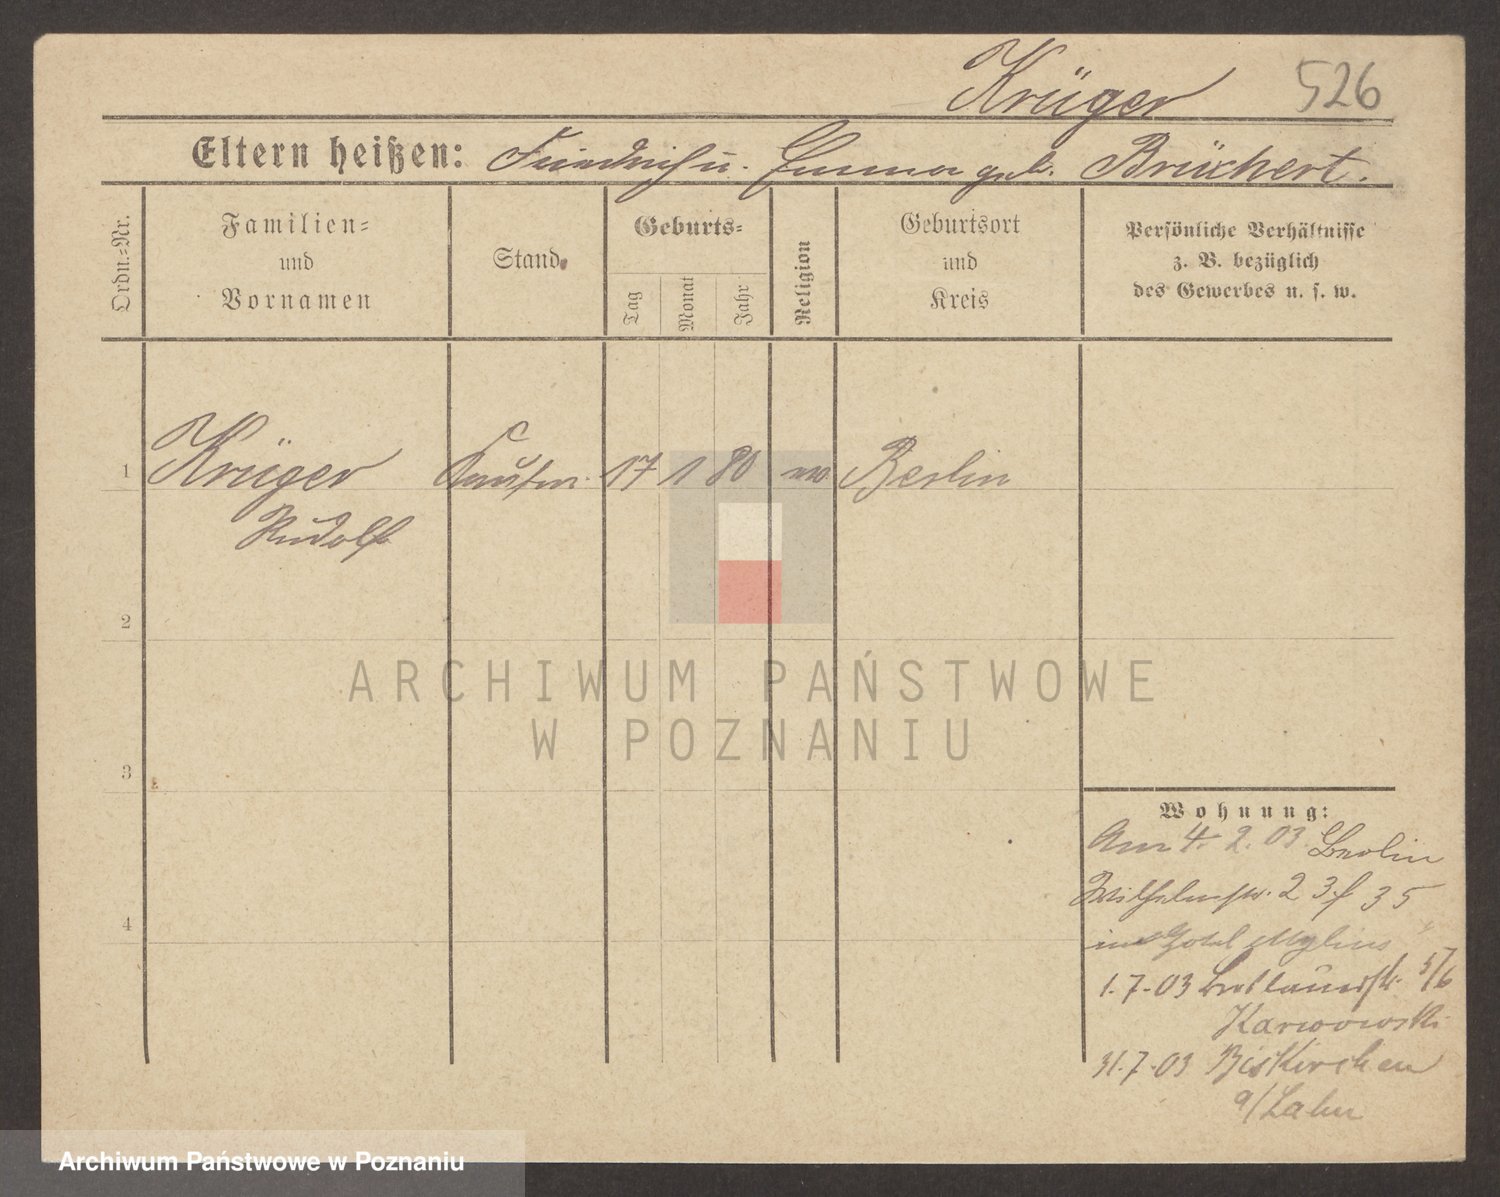 Krüger 526
Eltern heißen: Friedrich u. Emma geb. Brüchert.
Ordn.-Nr.
Familien-
und
Vornamen
Stand
Geburts-
Tag
Monat
Jahr
Religion
Geburtsort
und
Kreis
Persönliche Verhältnisse
z. B. bezüglich
des Gewerbes u. s. w.
1 Krüger Kaufm. 17 1 80 ev Berlin
Rudolf
2
3
4
ARCHIWUM PAŃSTWOWE
W POZNANIU
Wohnung:
Am 4. 2. 03. Berlin
Wilhelmstr. 23 35
im Hotel Mylius
1.7.03 5/6
Karwowski
31.7.03 Biskirchen
a/Lahn
Archiwum Państwowe w Poznaniu